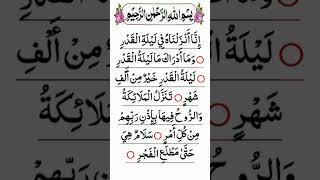 بِسْمِ اللهِ الرَّحْمٰنِ الرَّحِيْمِ
إِنَّا أَنْزَلْنَاهُ فِي لَيْلَةِ الْقَدْرِ
وَمَا أَدْرَاكَ مَا لَيْلَةُ الْقَدْرِ
لَيْلَةُ الْقَدْرِ خَيْرٌ مِنْ أَلْفِ
شَهْرٍ تَنَزَّلُ الْمَلَائِكَةُ
وَالرُّوحُ فِيهَا بِإِذْنِ رَبِّهِمْ
مِنْ كُلِّ أَمْرٍ سَلَامٌ هِيَ
حَتَّىٰ مَطْلَعِ الْفَجْرِ